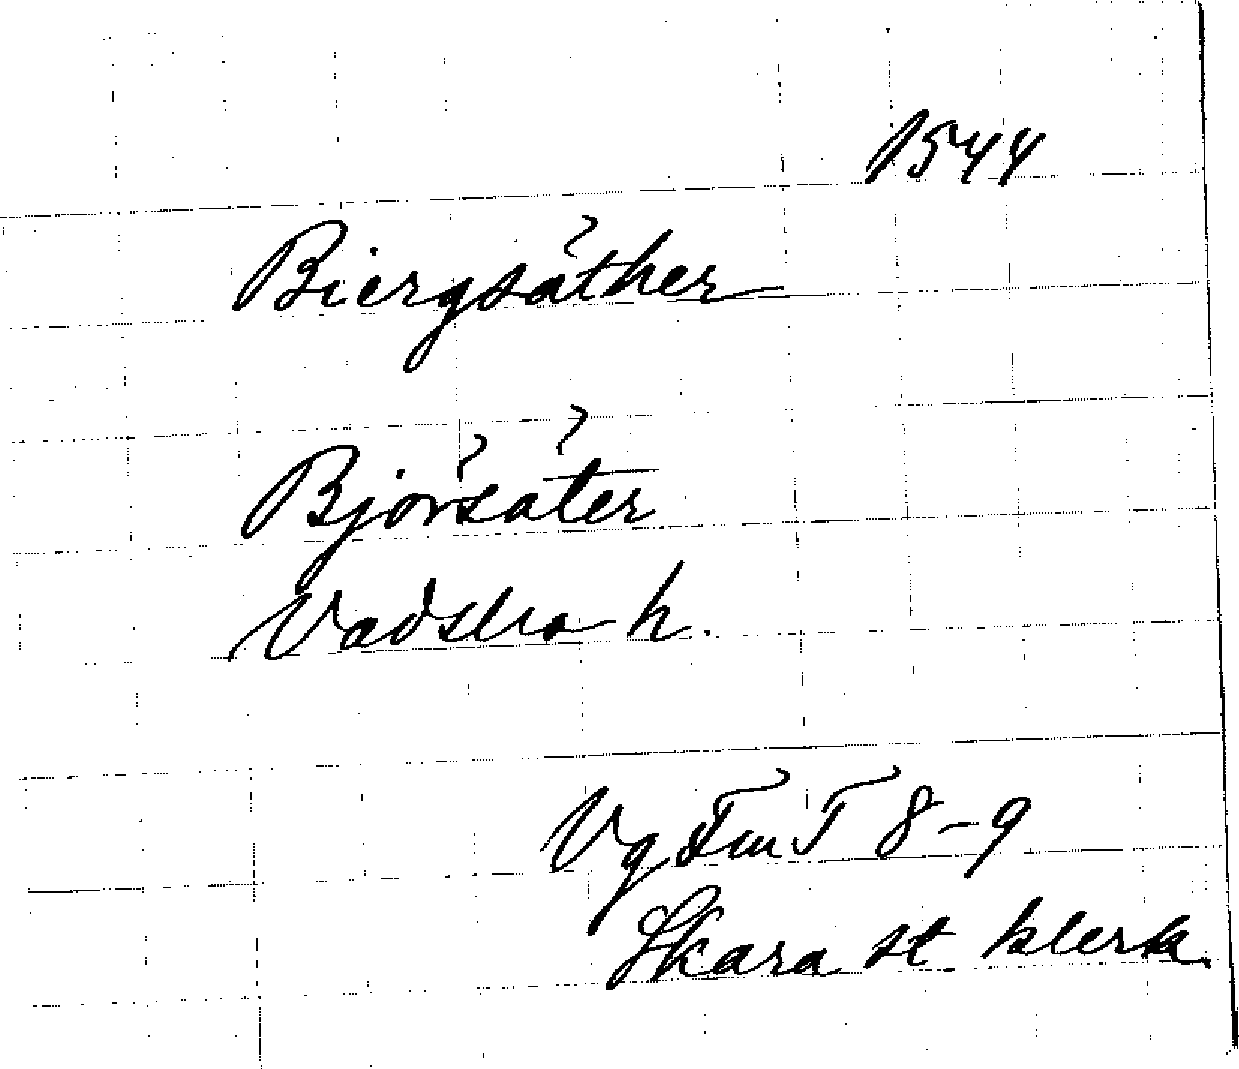 1544
Biergsäther
Björsäter
Vadsbo h.
Vg FmT 8-9
Skara st klerk.